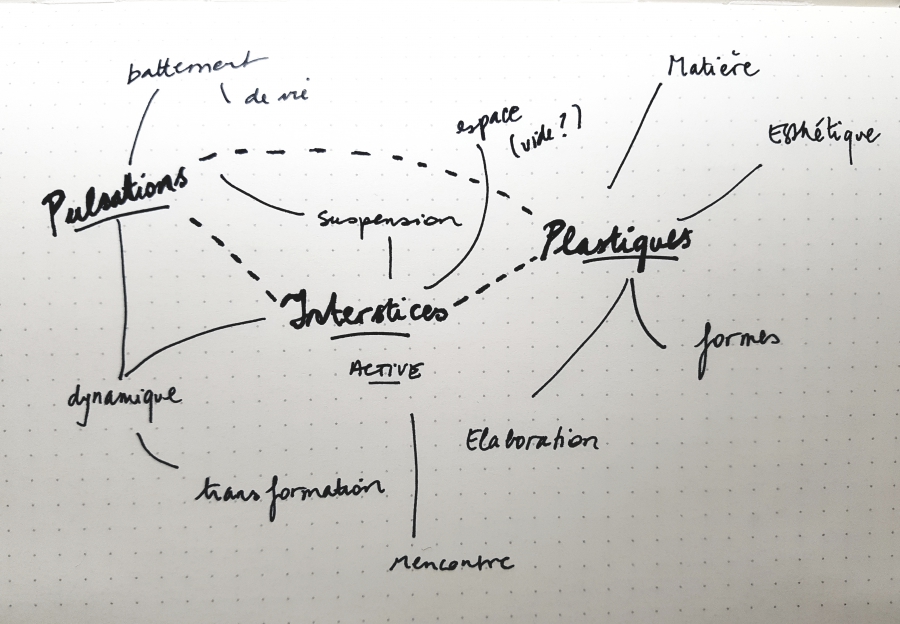 battement
de vie
Matière
espace
(vide?)
Esthétique
Pulsations
Suspension
Plastiques
Interstices
ACTIVE
formes
dynamique
Elaboration
transformation
rencontre